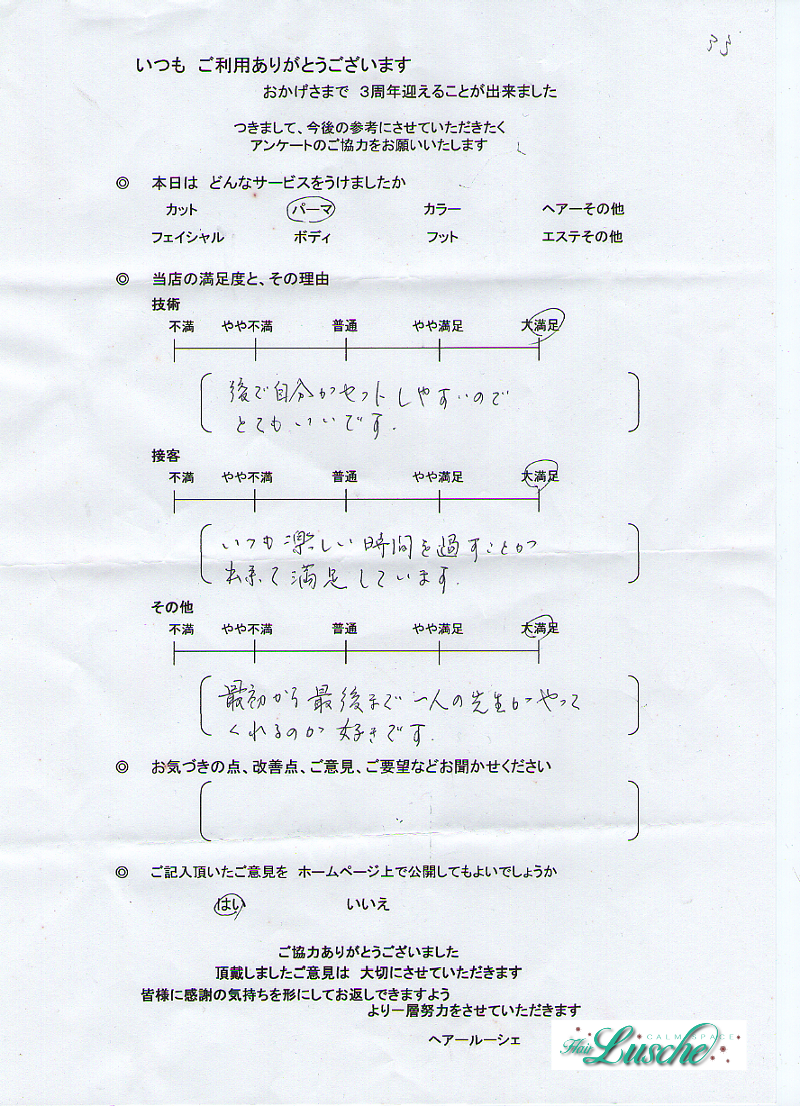 33
いつも ご利用ありがとうございます
おかげさまで 3周年迎えることが出来ました
つきまして、今後の参考にさせていただきたく
アンケートのご協力をお願いいたします
◎ 本日は どんなサービスをうけましたか
カット パーマ カラー ヘアーその他
フェイシャル ボディ フット エステその他
◎ 当店の満足度と、その理由
技術
不満 やや不満 普通 やや満足 大満足
後で自分がセットしやすいので
とてもいいです.
接客
不満 やや不満 普通 やや満足 大満足
いつも楽しい時間を過すことが
出来て満足しています.
その他
不満 やや不満 普通 やや満足 大満足
最初から最後まで一人の先生がやって
くれるのが好きです.
◎ お気づきの点、改善点、ご意見、ご要望などお聞かせください
◎ ご記入頂いたご意見を ホームページ上で公開してもよいでしょうか
はい いいえ
ご協力ありがとうございました
頂戴しましたご意見は 大切にさせていただきます
皆様に感謝の気持ちを形にしてお返しできますよう
より一層努力をさせていただきます
ヘアールーシェ
CALM SPACE
Hair Lusche